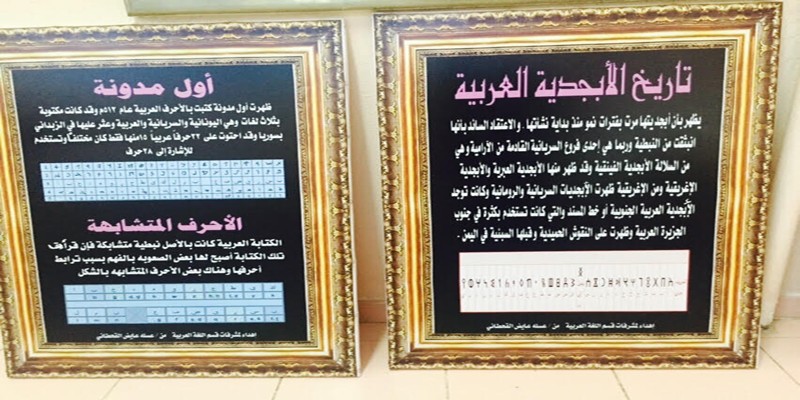 تاريخ الأبجدية العربية
يظهر بان أبجديتها مرت بفترات نمو منذ بداية نشأتها . والاعتقاد السائد بأنها
انبثقت من النبطية وربما هي إحدى فروع السريانية القادمة من الآرامية وهي
من السلالة الأبجدية الفينقية وقد ظهر منها الأبجدية العبرية والأبجدية
الإغريقية ومن الإغريقية ظهرت الأبجديات السريانية والرومانية وكانت توجد
الأبجدية العربية الجنوبية أو خط المسند والتي كانت تستخدم بكثرة في جنوب
الجزيرة العربية وظهرت على النقوش الحميدية وقبلها السبنية في اليمن .
إهداء لمشرفات قسم اللغة العربية من / عسله عايض القحطاني
أول مدونة
ظهرت أول مدونة كتبت بالأحرف العربية عام ٥١٢م وقد كانت مكتوبة
بثلاث لغات وهي اليونانية والسريانية والعربية وعثر عليها في الزبداني
بسوريا وقد احتوت على ٢٢حرفاً عربياً ١٥منها فقط كان مختلفاً وتستخدم
للإشارة إلى ٢٨حرف
الأحرف المتشابهة
الكتابة العربية كانت بالأصل نبطية متشابكة فإن قرآءة
تلك الكتابة أصبح لها بعض الصعوبه بالفهم بسبب ترابط
أحرفها وهناك بعض الأحرف المتشابهه بالشكل
إهداء لمشرفات قسم اللغة العربية من / عسله عايض القحطاني